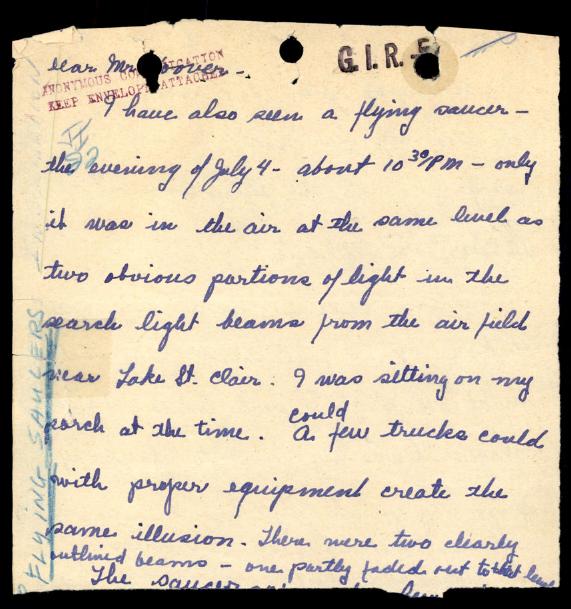 G.I.R.-5
Dear Mr. Hoover -
ANONYMOUS COMMUNICATION
KEEP ENVELOPE ATTACHED
I have also seen a flying saucer -
the evening of July 4 - about 10 30/PM - only
it was in the air at the same level as
two obvious portions of light in the
search light beams from the air field
near Lake St. Clair. I was sitting on my
porch at the time. A few trucks could
could
with proper equipment create the
same illusion. There were two clearly
outlined beams - one partly faded out to that level
The saucer
FLYING SAUCERS